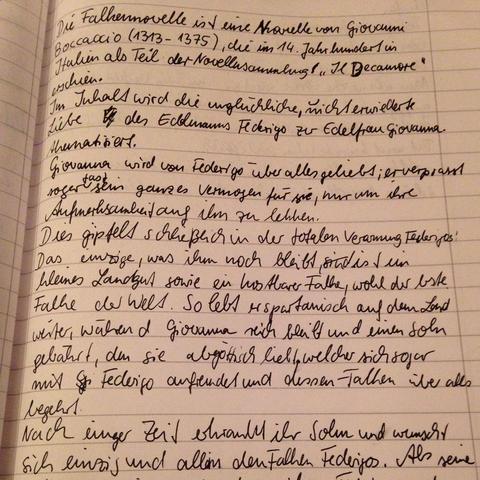 Die Falkennovelle ist eine Novelle von Giovanni
Boccaccio (1313 - 1375), die im 14. Jahrhundert in
Italien als Teil der Novellensammlung "Il Decamore"
erschien.
Im Inhalt wird die unglückliche, nicht erwiederte
Liebe des Edelmanns Federigo zur Edelfrau Giovanna
thematisiert.
Giovanna wird von Federigo über alles geliebt; er verprasst
sogar fast sein ganzes Vermögen für sie, nur um ihre
Aufmerksamkeit auf ihm zu lenken.
Dies gipfelt schließlich in der totalen Verarmung Federigos.
Das einzige, was ihm noch bleibt, ist ein
kleines Landgut sowie ein kostbarer Falke, wohl der beste
Falke der Welt. So lebt er spartanisch auf dem Land
weiter, während Giovanna reich bleibt und einen Sohn
gebährt, den sie abgöttisch liebt, welcher sich sogar
mit Federigo anfreundet und dessen Falken über alles
begehrt.
Nach einger Zeit erkrankt ihr Sohn und wünscht
sich einzig und allein den Falken Federigos. Als seine